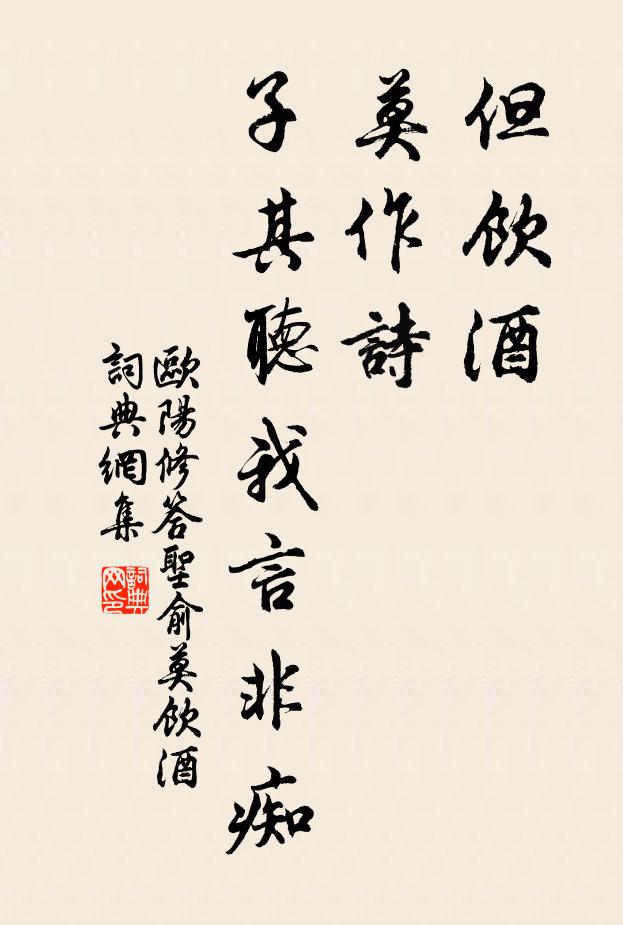 但飲酒
莫作詩
子其聽我言非痴
歐陽修答聖俞莫飲酒
詞典網集
詞典
网印